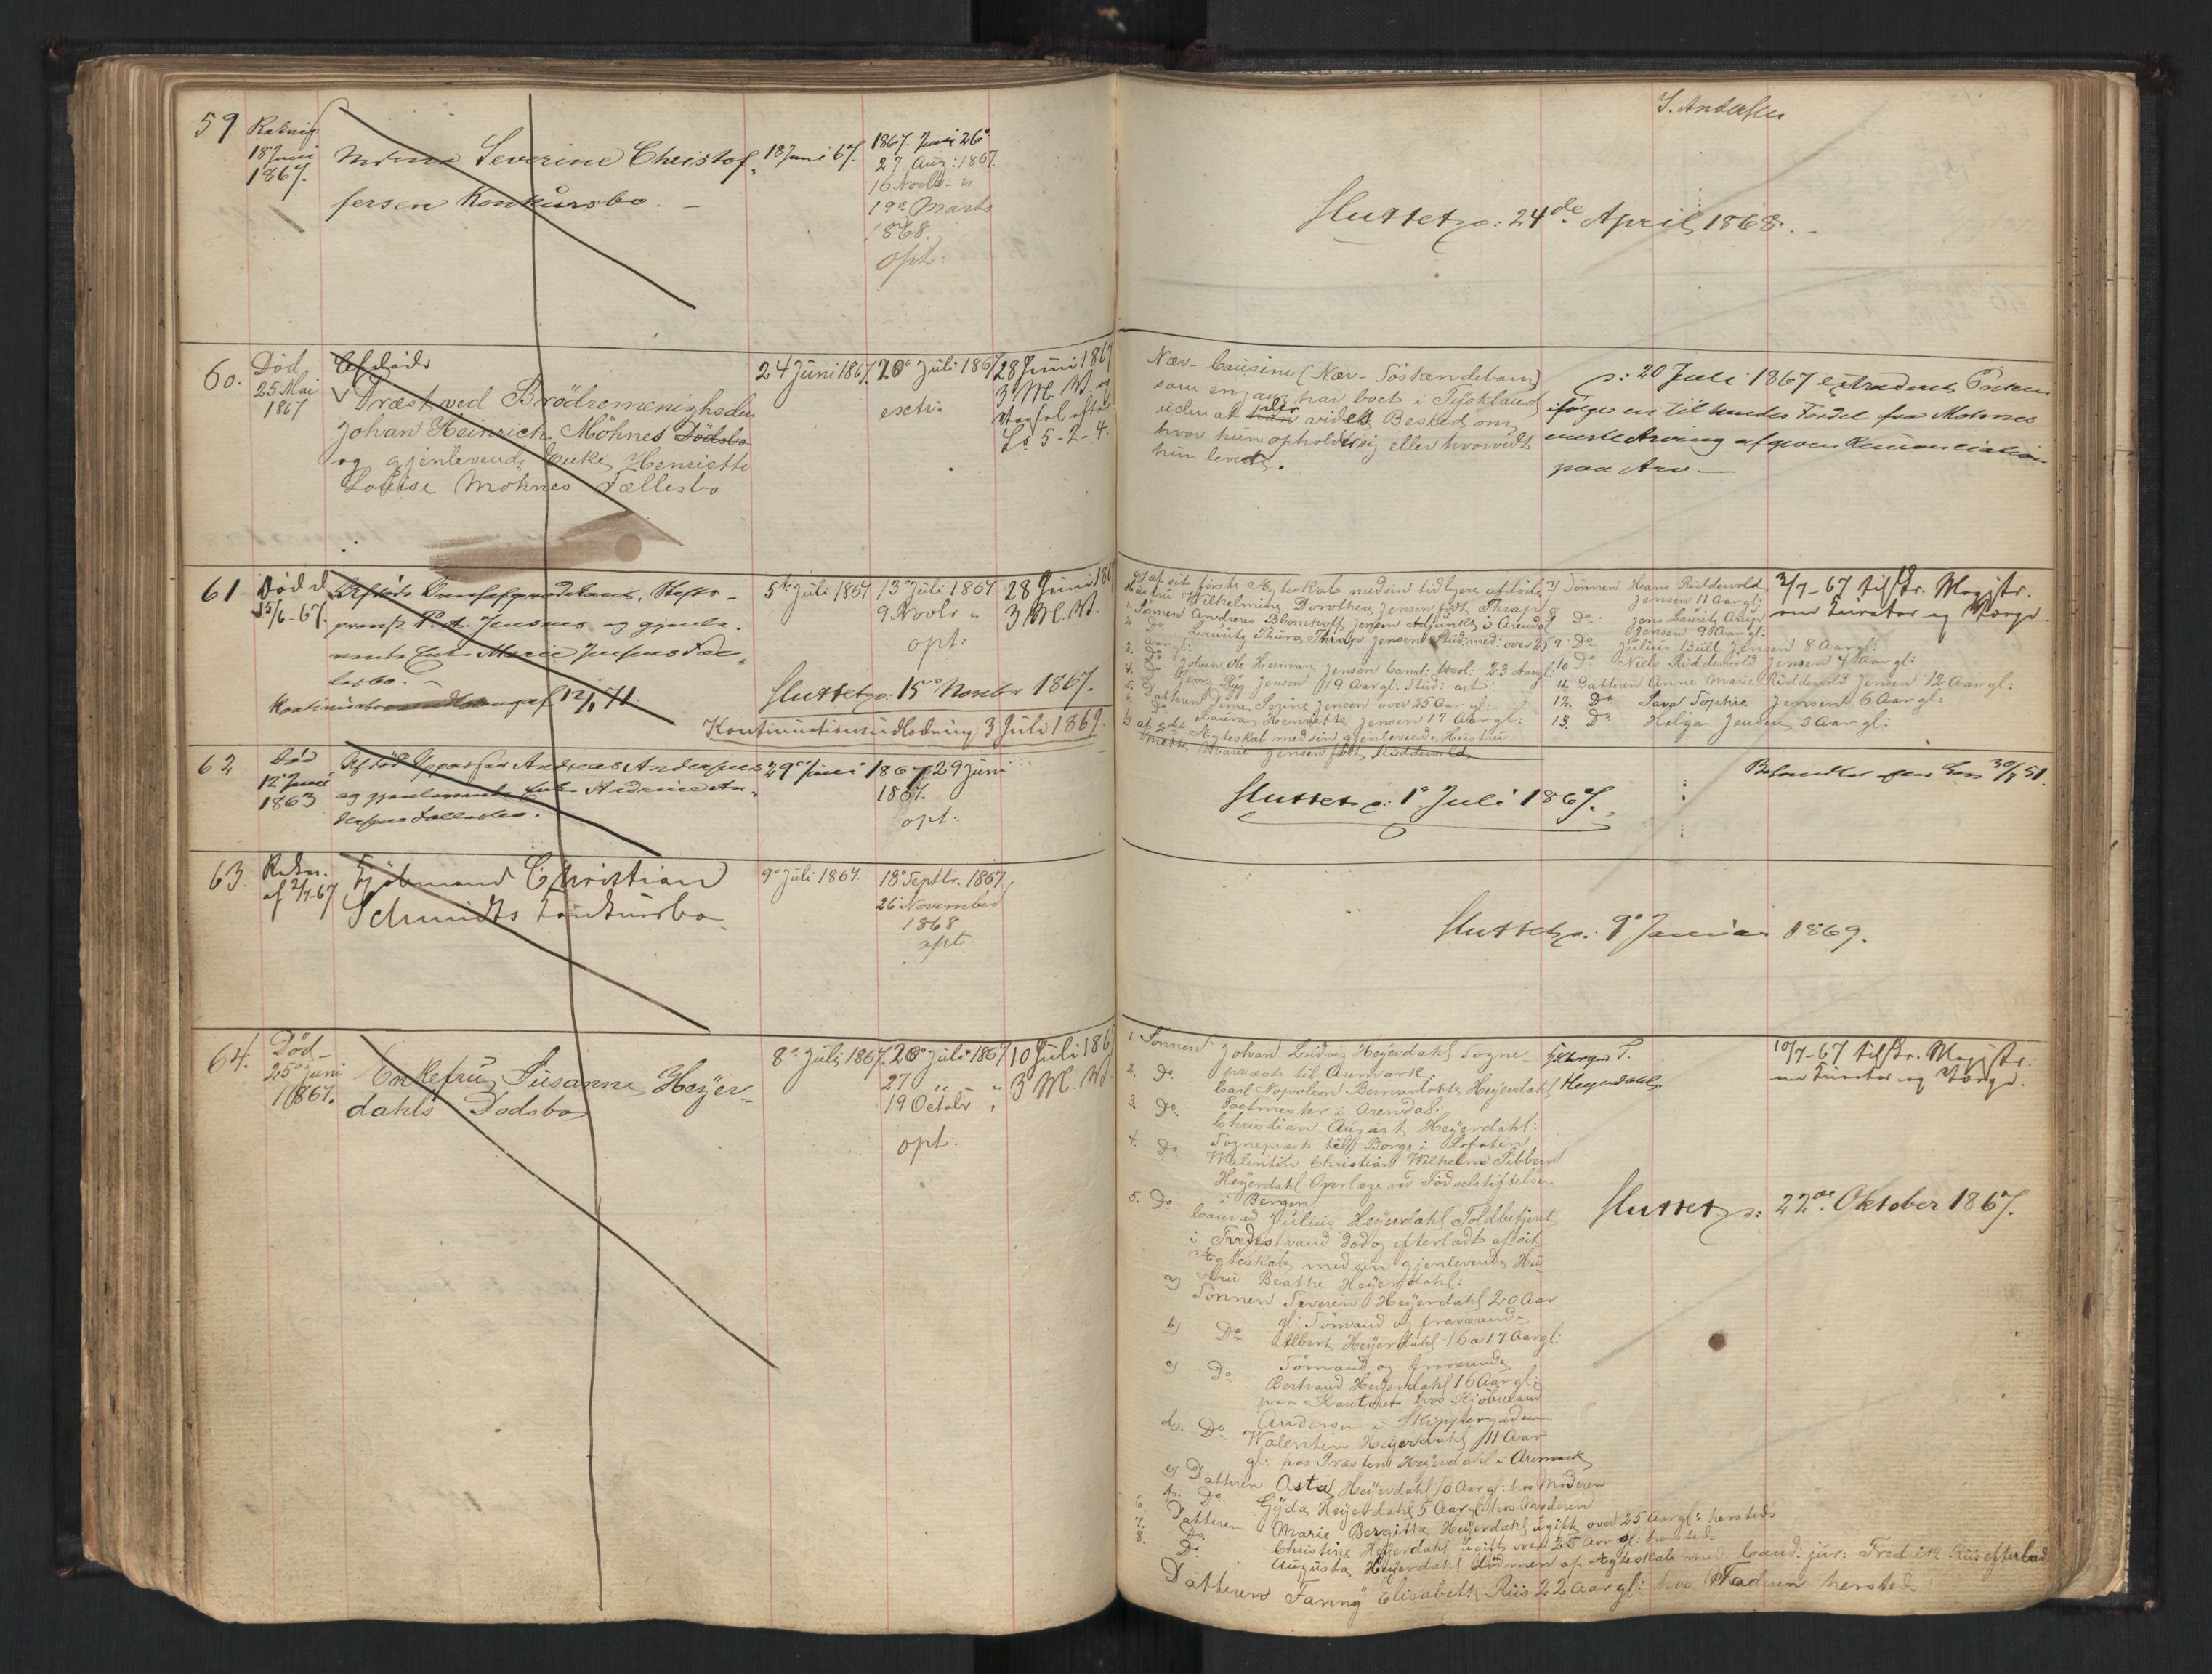 59
18 Juni
1867.
Severine Christof-
fersen Konkursbo. –
18 Juni 67.
1867. Juni 26
27. Aug: 1867.
16 Novbr "
19e Marts
1868.
opt:
J. Andersen
Sluttet p: 24de April 1868. –
60.
Død
25 Mai
1867
Afdøde
Præst ved Brödremenigheden
Johan Heinrich Möhnes Dödsbo
og gjenlevende Enke Henriette
Louise Möhnes Fællesbo
24 Juni 1867.
20 Juli 1867
28 Juni 1867
3 M. W. og
Varsel efter
Lb 5-2-4.
Næv-Cusine (Næv-Söskendebarn)
som engang har boet i Tydskland
uden at vides Besked om
hvor hun opholder sig eller hvorvidt
hun lever.
p: 20 Juli 1867 extraderet Enken
ifølge
paa Arv –
61
Død d.
15/6-67.
Afdøde
provst P. A. Jensens og gjenle-
vende Enke Marie Jensens Fæl-
lesbo. –
12/1 71.
5te Juli 1867
13 Juli 1867.
9 Novbr "
opt:
28 Juni 1867
3 M. W.
Sluttet p: 15 Novbr 1867.
Kontinuationsudlodning 3 Juli 1869.
a) af sit förste Ægteskab med sin tidligere afdöde
Hustru Wilhelmine Dorothea Jensen födt Thrap
1. Sönnen Andreas Blomhoff Jensen Adjunkt i Arendal
2. Do Lauritz Thura Thrap Jensen Stud: med: over 25
Aar gl:
3. Do Johan Ole Herman Jensen Cand: theol: 23 Aar gl:
4. Do Georg Rÿg Jensen 19 Aar gl: Stud: art:
5. Datteren Dina Sezine Jensen over 25 Aar gl:
6. Do Laura Henriette Jensen 17 Aar gl:
b) af 2det Ægteskab med sin gjenlevende Hustru
Mette Marie Jensen födt Riddervold
7) Sönnen Hans Riddervold
Jensen 11 Aar gl:
8 Do Jens Lauritz Arup
Jensen 9 Aar gl:
9 Do Julius Bull Jensen 8 Aar gl:
10 Do Niels Riddervold Jensen 4 Aar gl:
11. Datteren Anne Marie Riddervold Jensen 12 Aar gl:
12. Do Sara Sophie Jensen 6 Aar gl:
13. Do Helga Jensen 3 Aar gl:
2/7-67 tilskr. Magistr.
om Kurator og Værge.
62
Død
12 Juni
1863
Afdøde Andreas Andersens
og gjenlevende Enke An-
dersens Fællesbo.
29 Juni 1867.
29 Juni
1867.
opt:
Sluttet p: 1 Juli 1867.
Behandlet efter Lov 30/7 51.
63.
af 2/7-67
Kjöbmand Christian
Schmidts Konkursbo
9 Juli 1867.
18 Septbr. 1867
26 November
1868
opt.
Sluttet p: 9 Januar 1869.
64.
Død –
25 Juni
1867.
Enkefru Susanne Heÿer-
dahls Dödsbo
8 Juli 1867.
20 Juli 1867
27 " – "
19 Octobr "
opt:
10 Juli 1867
3 M. W.
1. Sönnen Johan Ludvig Heÿerdahl Sogne-
præst til Aremark.
2. Do Carl Napoleon Bernardotte Heÿerdahl
Postmester i Arendal:
3. Do Christian August Heÿerdahl:
Sognepræst til Borge i Lofoten
4. Do Walentin Christian Wilhelm Sibbern
Heÿerdahl Overlæge ved Födselsstiftelsen
i Bergen
5. Do Conrad Julius Heÿerdahl Toldbetjent
i Tvedestrand död og efterladt af sit
Ægteskab med sin gjenlevende Hu-
stru Beathe Heÿerdahl:
a) Sönnen Severin Heÿerdahl 20 Aar
gl: Sömand og fraværende
b) Do Albert Heÿerdahl 16 a 17 Aar gl:
Sömand og fraværende
c) Do Bertrand Heÿerdahl 16 Aar gl:
paa Kontoret hos Kjöbmand
Andersen i Skippergaden
d) Do Walentin Heÿerdahl 11 Aar
gl: hos Præsten Heÿerdahl i Aremark
e) Datteren Asta Heÿerdahl 10 Aar gl: hos Moderen
f. Do Gÿda Heÿerdahl 5 Aar gl: hos Moderen
6. Datteren Marie Bergitte Heÿerdahl ugift over 25 Aar gl: hersteds
7. Do Christine Heÿerdahl ugift over 25 Aar gl: hersteds
8. Do Augusta Heÿerdahl död men af Ægteskab med Cand: jur: Fredrik Riis efterladt
Datteren Fannÿ Elisabeth Riis 22 Aar gl: hos Faderen hersteds
Heyerdahl
10/7-67 tilskr. Magistr.
om Kurator og Værge.
Sluttet p: 22de Oktober 1867.